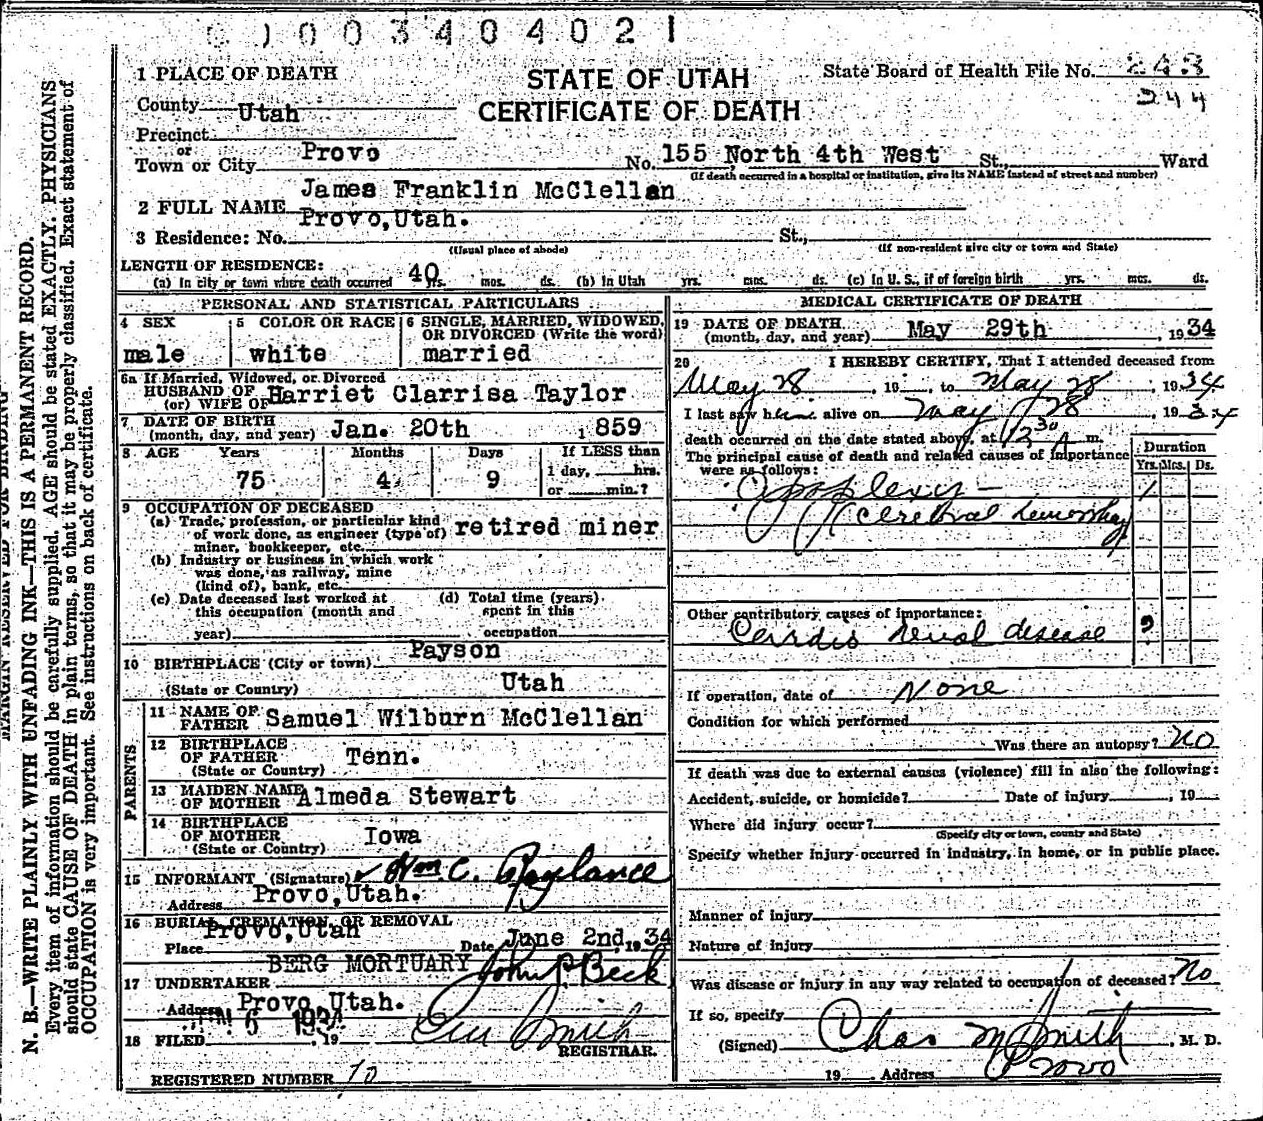 003404021
1 PLACE OF DEATH
STATE OF UTAH
CERTIFICATE OF DEATH
State Board of Health File No. 243
244
County Utah
Precinct
or
Town or City Provo
No. 155 North 4th West St., Ward
(If death occurred in a hospital or institution, give its NAME instead of street and number)
2 FULL NAME James Franklin McClellan
3 Residence: No. Provo, Utah. St.,
(Usual place of abode) (If non-resident give city or town and State)
LENGTH OF RESIDENCE:
(a) In city or town where death occurred 40 yrs. mos. ds. (b) In Utah yrs. mos. ds. (c) In U. S., if of foreign birth yrs. mos. ds.
PERSONAL AND STATISTICAL PARTICULARS
4 SEX
male
5 COLOR OR RACE
white
6 SINGLE, MARRIED, WIDOWED,
OR DIVORCED (Write the word)
married
6a If Married, Widowed, or Divorced
HUSBAND OF
(or) WIFE OF Harriet Clarrisa Taylor
7 DATE OF BIRTH
(month, day, and year) Jan. 20th 1859
8 AGE Years Months Days If LESS than
1 day, hrs.
or min.?
75 4 9
9 OCCUPATION OF DECEASED
(a) Trade, profession, or particular kind
of work done, as engineer (type of)
miner, bookkeeper, etc. retired miner
(b) Industry or business in which work
was done, as railway, mine
(kind of), bank, etc.
(c) Date deceased last worked at
this occupation (month and
year)
(d) Total time (years)
spent in this
occupation
10 BIRTHPLACE (City or town) Payson
(State or Country) Utah
PARENTS
11 NAME OF
FATHER Samuel Wilburn McClellan
12 BIRTHPLACE
OF FATHER
(State or Country) Tenn.
13 MAIDEN NAME
OF MOTHER Almeda Stewart
14 BIRTHPLACE
OF MOTHER
(State or Country) Iowa
15 INFORMANT (Signature) Wm C. Raylance
Address Provo, Utah.
16 BURIAL, CREMATION, OR REMOVAL
Place Provo, Utah Date June 2nd, 1934
17 UNDERTAKER BERG MORTUARY John P. Beck
Address Provo, Utah.
18 FILED JUN 6 1934, 19
Smith
REGISTRAR.
REGISTERED NUMBER 70
MEDICAL CERTIFICATE OF DEATH
19 DATE OF DEATH
(month, day, and year) May 29th, 1934
20 I HEREBY CERTIFY, That I attended deceased from
May 28, 19 , to May 28, 1934
I last saw him alive on May 28, 1934
death occurred on the date stated above, at 12 30 A m.
The principal cause of death and related causes of importance
were as follows:
Duration
Yrs. Mos. Ds.
Apoplexy - 1
Cerebral hemorrhage
Other contributory causes of importance:
Cardio renal disease ?
If operation, date of None
Condition for which performed
Was there an autopsy? No
If death was due to external causes (violence) fill in also the following:
Accident, suicide, or homicide? Date of injury, 19
Where did injury occur?
(Specify city or town, county and State)
Specify whether injury occurred in industry, in home, or in public place.
Manner of injury
Nature of injury
Was disease or injury in any way related to occupation of deceased? No
If so, specify
(Signed) Chas M Smith, M. D.
19 Address Provo
MARGIN RESERVED FOR BINDING
N. B.—WRITE PLAINLY WITH UNFADING INK—THIS IS A PERMANENT RECORD.
Every item of information should be carefully supplied. AGE should be stated EXACTLY. PHYSICIANS
should state CAUSE OF DEATH in plain terms, so that it may be properly classified. Exact statement of
OCCUPATION is very important. See instructions on back of certificate.